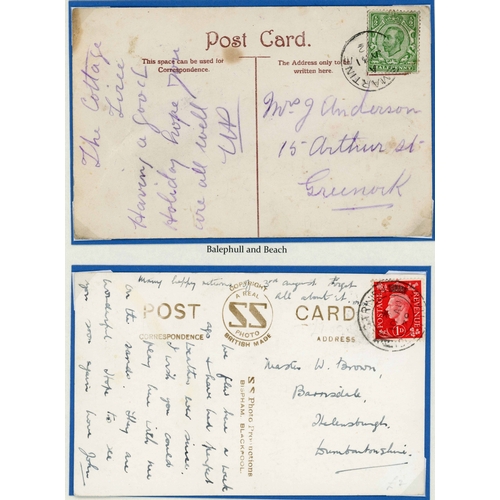 Post Card.
This space can be used for
Correspondence.
The Address only to be
written here.
The Cottage
Tiree
Having a good
Holiday hope you
are all well
MARTIN
Mrs J Anderson
15 Arthur st
Greenock
Balephull and Beach
Many happy returns 3rd August
all about it.
POST
CARD
COPYRIGHT
A REAL
SS
PHOTO
BRITISH MADE
CORRESPONDENCE
ADDRESS
POSTAGE
REVENUE
1D
SS Photo Productions
BISPHAM, BLACKPOOL.
here a week
ago & have had perfect
weather ever since.
I wish you could
here with me
on the sands. They are
wonderful. Hope to see
you soon again love John
Master W. Brown,
Barnsdale,
Helensburgh,
Dumbartonshire.